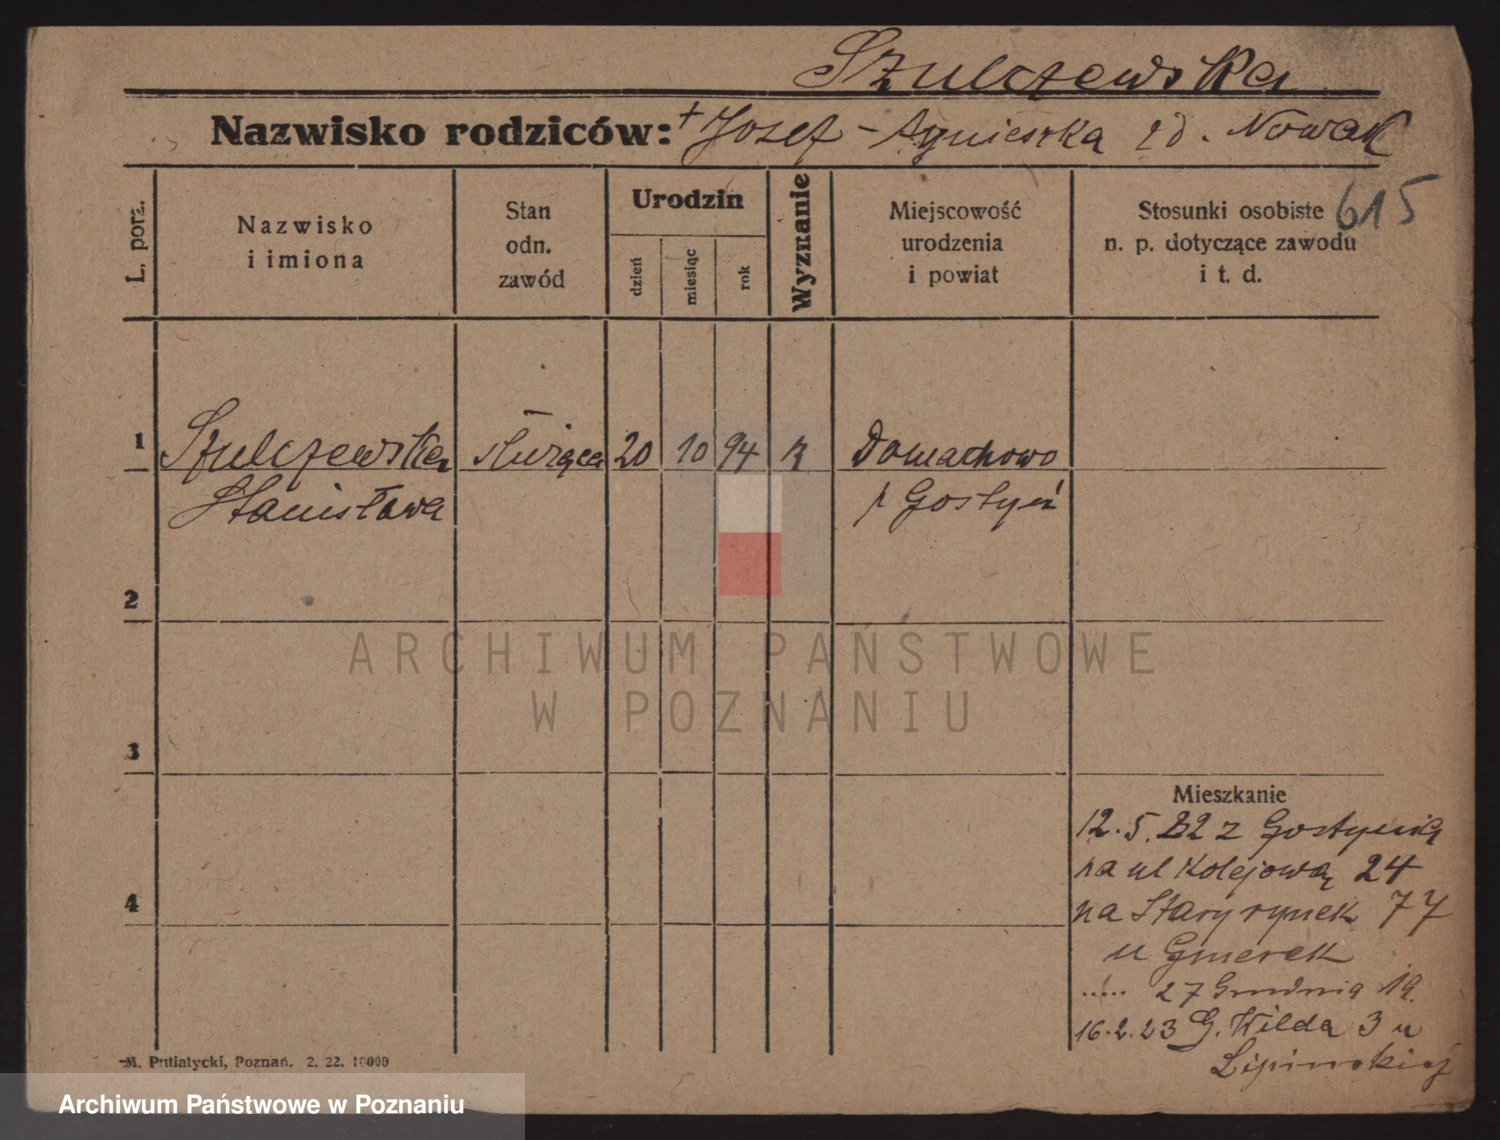 Szulczewska
Nazwisko rodziców: + Jozef - Agnieszka z d. Nowak
615
L. porz.
Nazwisko
i imiona
Stan
odn.
zawód
Urodzin
dzień
miesiąc
rok
Wyznanie
Miejscowość
urodzenia
i powiat
Stosunki osobiste
n. p. dotyczące zawodu
i t. d.
1 Szulczewska służąca 20 10 94 k Domachowo
Stanisława p Gostyń
2
ARCHIWUM PAŃSTWOWE
W POZNANIU
3
Mieszkanie
12.5.22 z Gostynia
na ul Kolejową 24
4
na Stary rynek 77
u Gmerek
..... 27 Grudnia 19.
16.2.23 G. Wilda 3 u
Lipinskiej
M. Putiatycki, Poznań. 2. 22. 10000
Archiwum Państwowe w Poznaniu